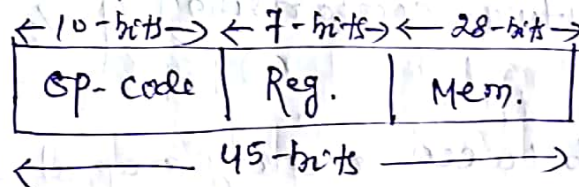 10-bits 7-bits 28-bits
OP-code Reg. Mem.
45-bits